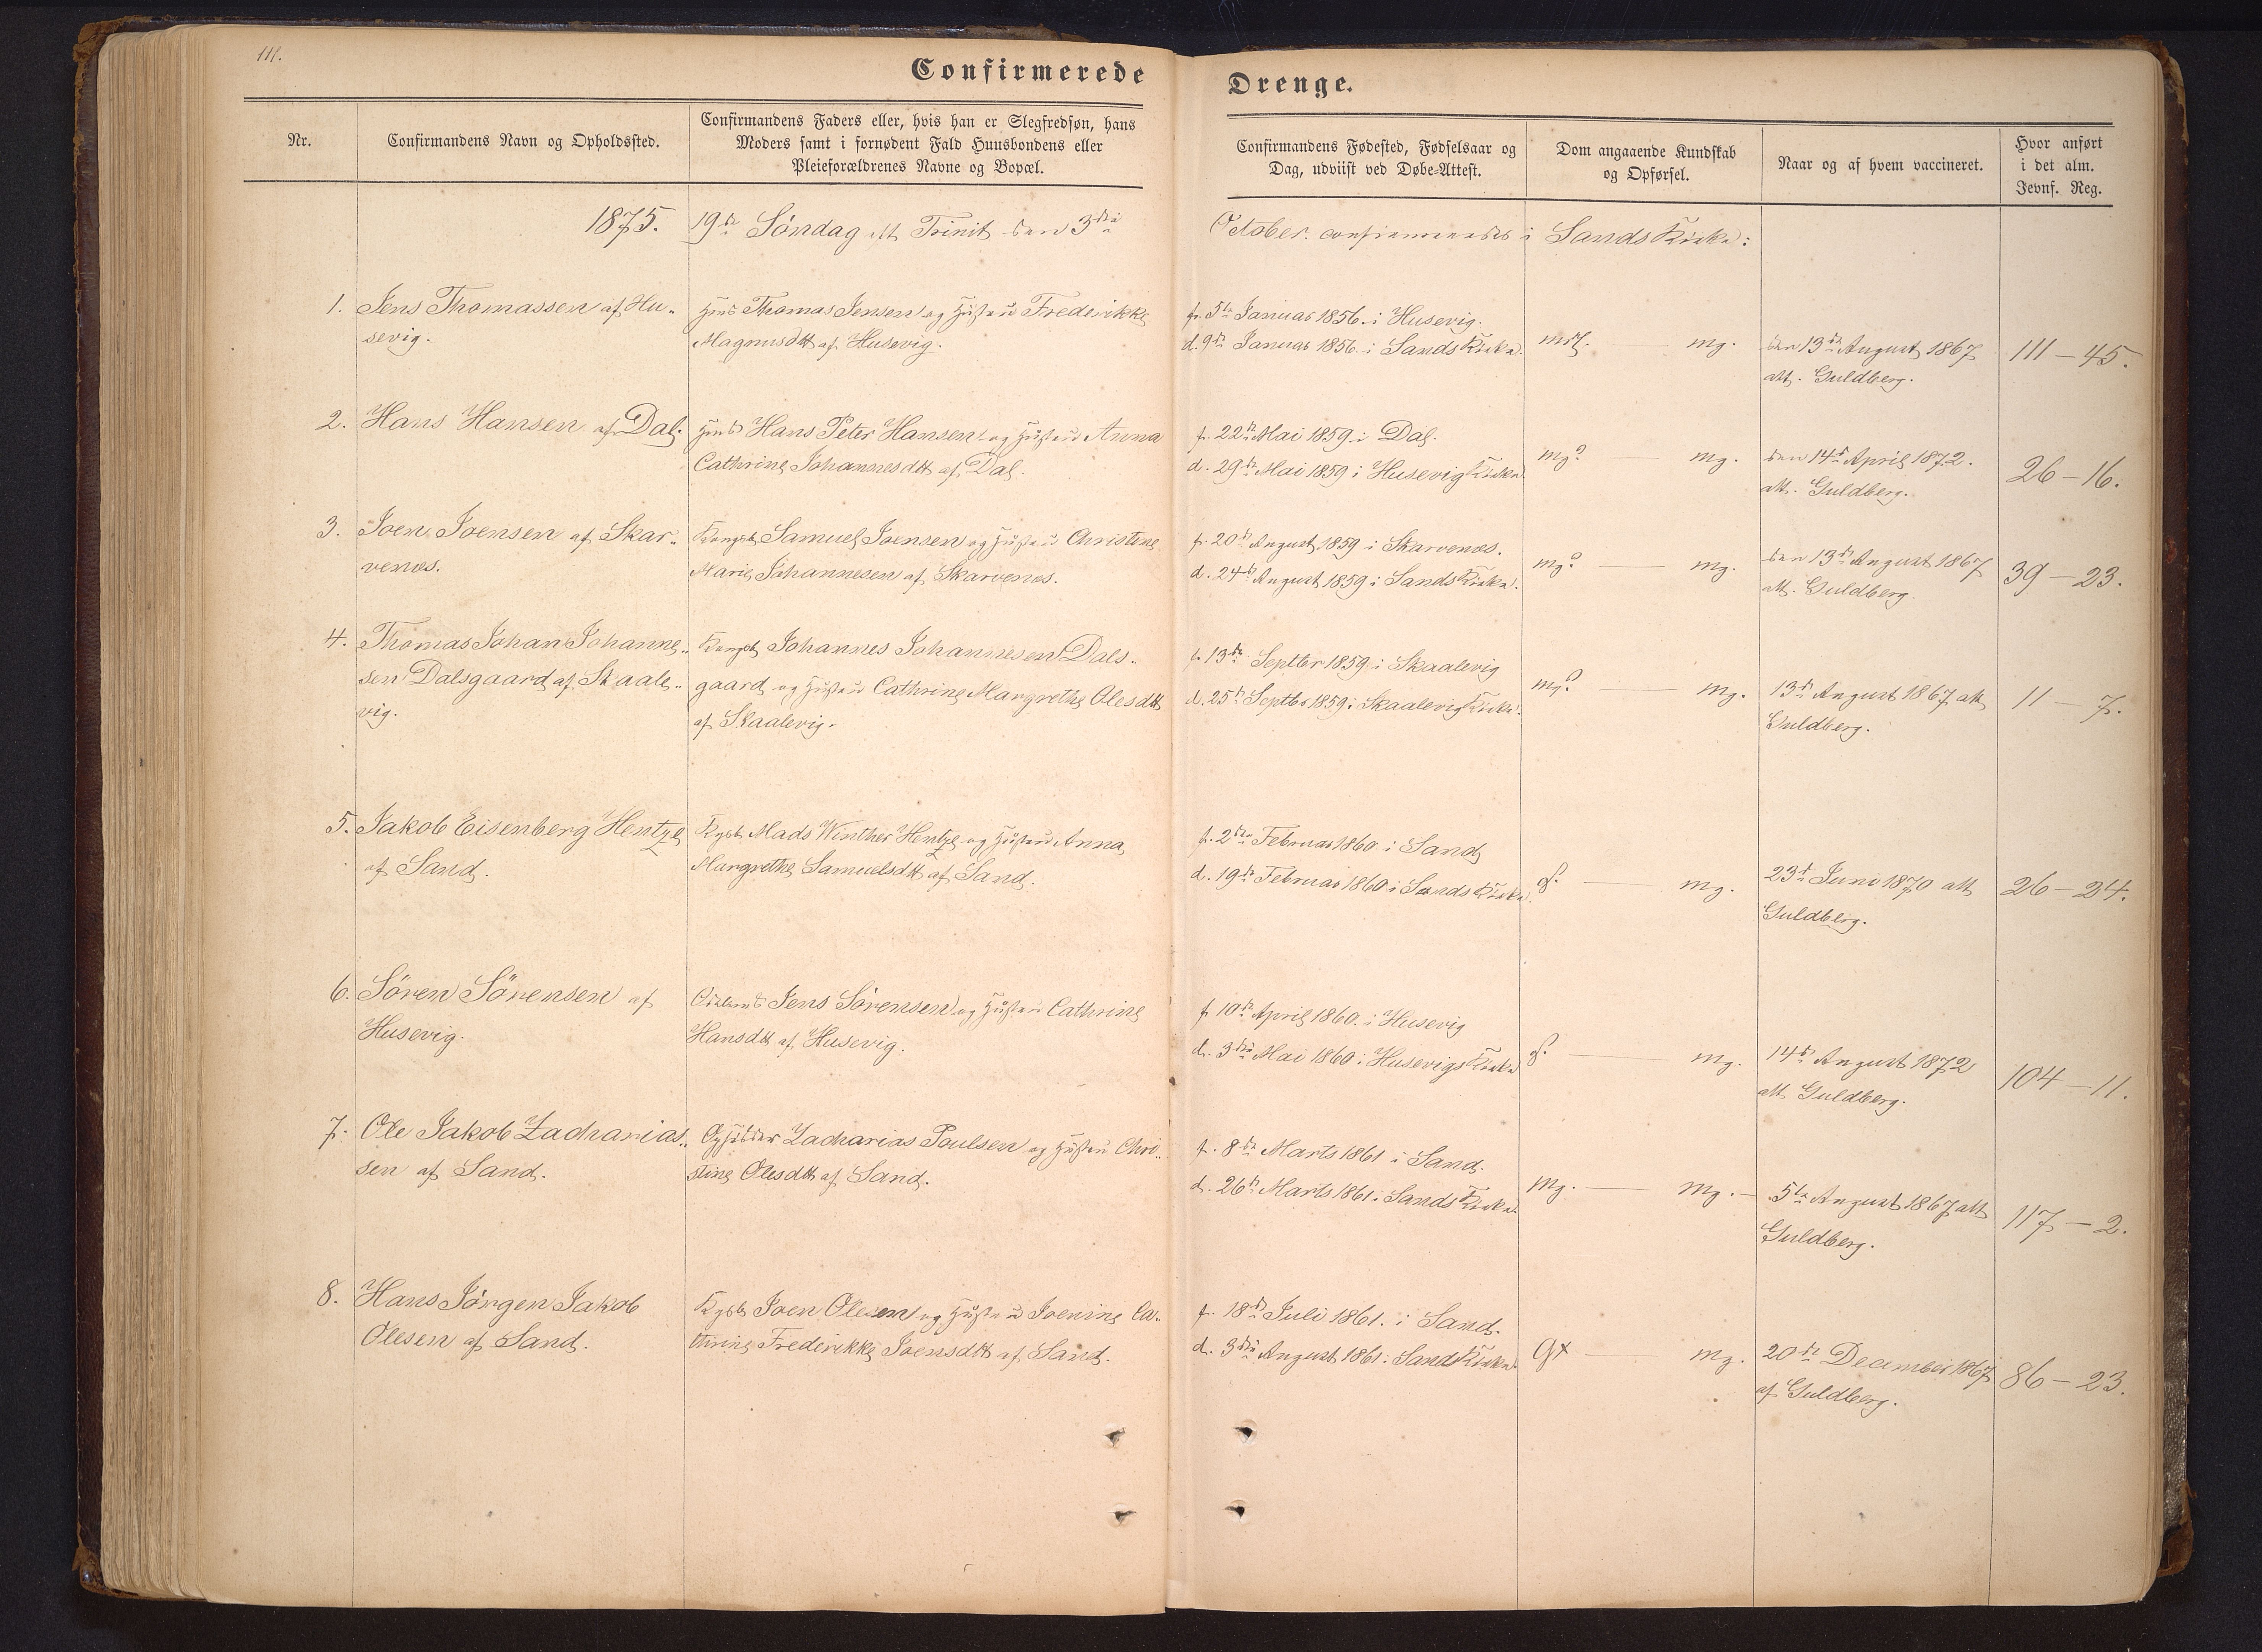 111.
Confirmerede Drenge.
Nr.
Confirmandens Navn og Opholdssted.
Confirmandens Faders eller, hvis han er Slegfredsøn, hans
Moders samt i fornødent Fald Huusbondens eller
Pleieforældrenes Navne og Bopæl.
Confirmandens Fødested, Fødselsaar og
Dag, udviist ved Døbe-Attest.
Dom angaaende Kundskab
og Opførsel.
Naar og af hvem vaccineret.
Hvor anført
i det alm.
Jevnf. Reg.
1875. 19de Söndag eft Trinit den 3die October confirmeredes i Sands Kirke:
1. Jens Thomassen af Hu-
sevig.
Thomas Jensen og Hustru Frederikke
Magnusdtt af Husevig.
f. 5te Januar 1856 i Husevig.
d. 9de Januar 1856 i Sands Kirke.
mdl. — mg.
den 13de August 1867
att. Guldberg.
111 — 45.
2. Hans Hansen af Dal.
Hans Peter Hansen og Hustru Anna
Cathrine Johannesdtt af Dal.
f. 22de Mai 1859 i Dal.
d. 29de Mai 1859 i Husevig Kirke.
mg? — mg.
den 14de April 1872.
att. Guldberg.
26 — 16.
3. Joen Joensen af Skar-
venæs.
Kongsb Samuel Joensen og Hustru Christine
Marie Johannesen af Skarvenæs.
f. 20de August 1859 i Skarvenæs.
d. 24de August 1859 i Sands Kirke.
mg? — mg.
den 13de August 1867
att. Guldberg.
39 — 23.
4. Thomas Johan Johanne-
sen Dalsgaard af Skaale-
vig.
Kongsb Johannes Johannesen Dals-
gaard og Hustru Cathrine Margrethe Olesdtt
af Skaalevig.
f. 13de Septbr 1859 i Skaalevig
d. 25de Septbr 1859 i Skaalevig Kirke.
mg? — mg.
13de August 1867 att
Guldberg.
11 — 7.
5. Jakob Eisenberg Hentze
af Sand.
Kgsb Mads Winther Hentze og Hustru Anna
Margrethe Samuelsdtt af Sand.
f. 2den Februar 1860 i Sand
d. 19de Februar 1860 i Sands Kirke.
g. — mg.
23de Juni 1870 att
Guldberg.
26 — 24.
6. Sören Sörensen af
Husevig.
Jens Sörensen og Hustru Cathrine
Hansdtt af Husevig.
f. 10de April 1860. i Husevig
d. 3die Mai 1860 i Husevigs Kirke
g. — mg.
14de August 1872
att Guldberg.
104 — 11.
7. Ole Jakob Zacharias-
sen af Sand.
Opsidder Zacharias Poulsen og Hustru Chri-
stine Olesdtt af Sand.
f. 8de Marts 1861 i Sand.
d. 26de Marts 1861 i Sands Kirke.
mg. — mg. —
5te August 1867 att
Guldberg.
117 — 2.
8. Hans Jörgen Jakob
Olesen af Sand.
Kgsb Joen Olesen og Hustru Joenine Ca-
thrine Frederikke Joensdtt af Sand.
f. 18de Juli 1861. i Sand.
d. 3die August 1861 i Sand Kirke.
g+ — mg.
20de December 1867
af Guldberg.
86 — 23.